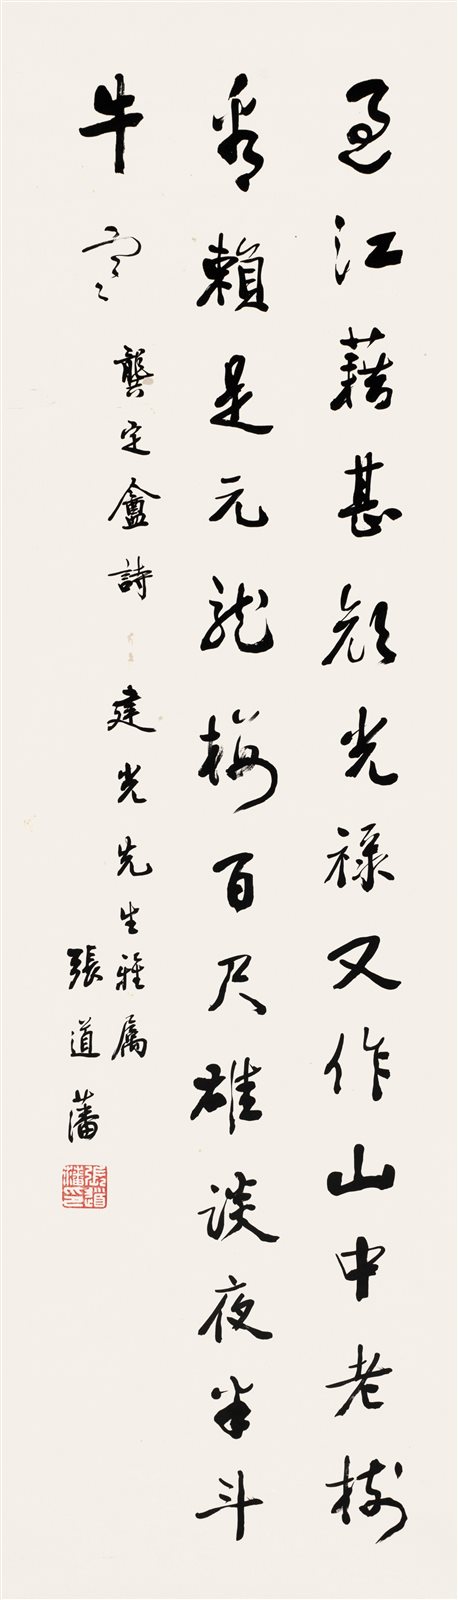 過江藉甚顏光祿又作山中老樹
看賴是元龍樓百尺雄談夜半斗
牛寒
龔定盦詩 建光先生雅屬
張道藩
張道藩印